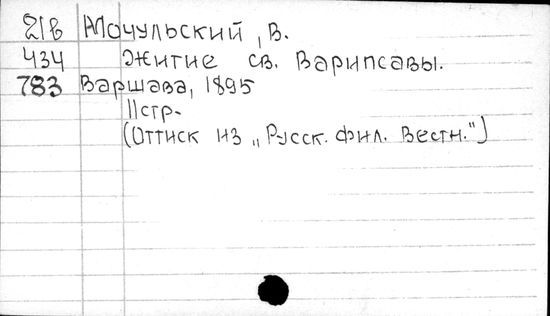 21в Мочульский, В.
434 Житие св. Варипсавы.
783 Варшава, 1895
11стр.
(Оттиск из „Русск. фил. Вестн.")